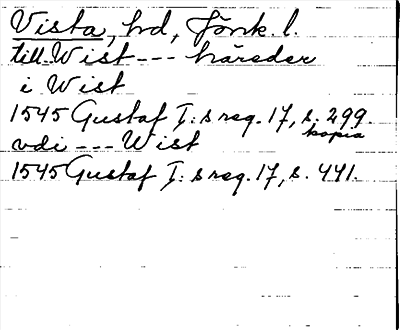 Vista, hd, Jönk. l.
till Wist --- häreder
i Wist
1545 Gustaf I:s reg. 17, s. 299.
kopia
vdi --- Wist
1545 Gustaf I:s reg. 17, s. 441.